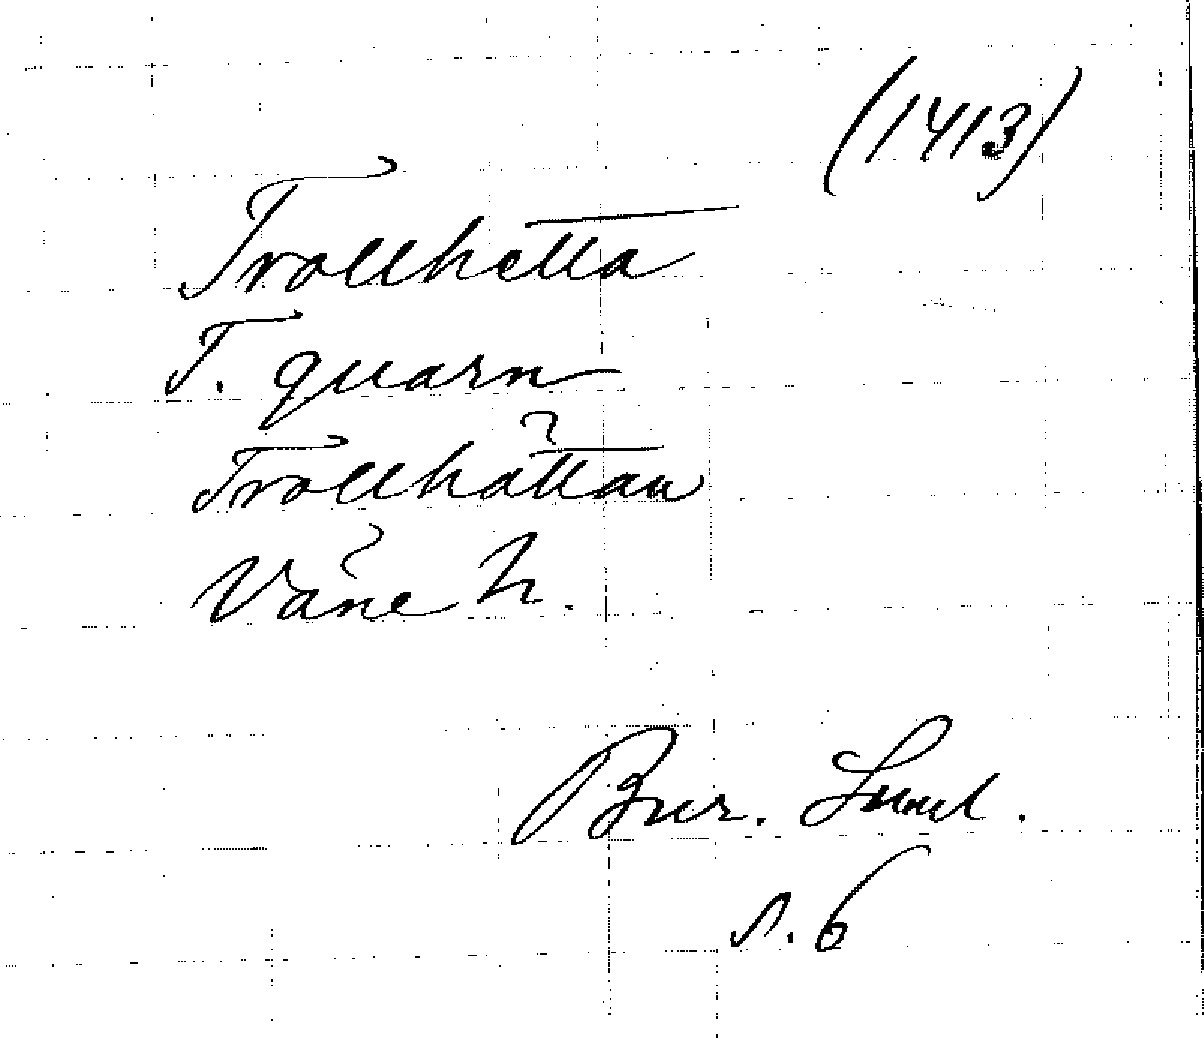 (1413)
Trollhetta
T. quarn
Trollhättan
Väne h.
Bur. Sunl.
s. 6